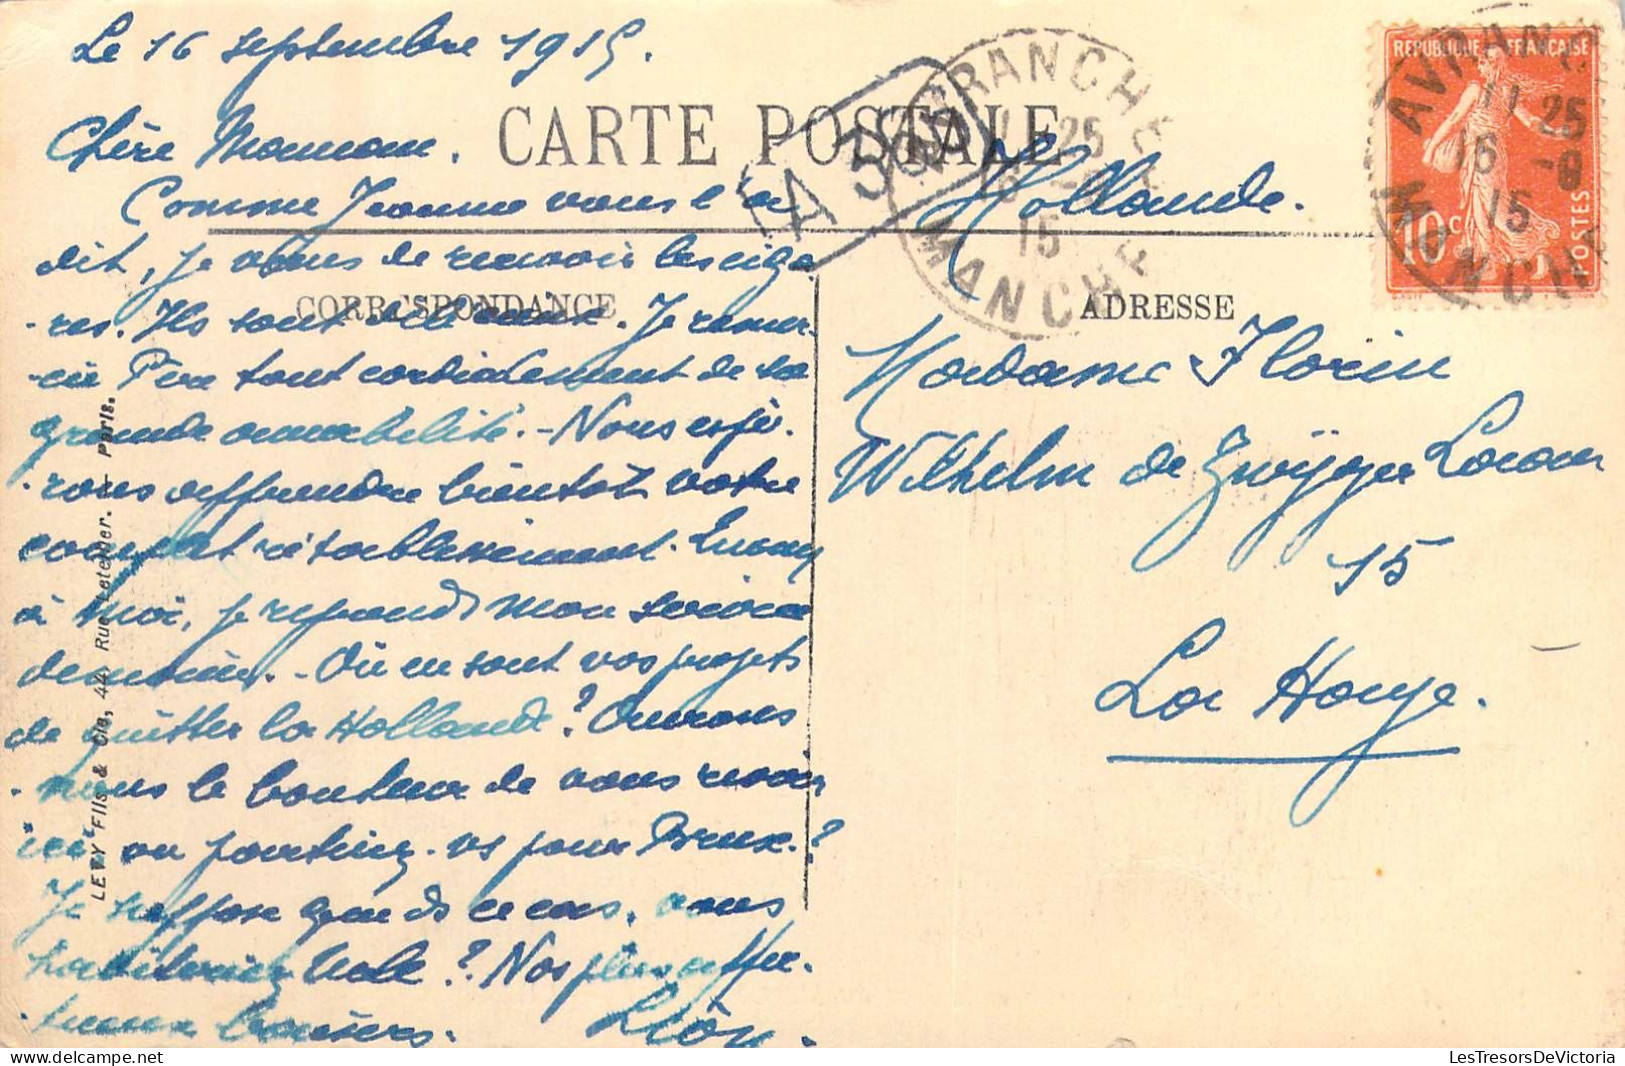 Le 16 septembre 1915.
CARTE POSTALE
Chère Maman.
Comme Jeanne vous l'a
dit, je viens de recevoir les ciga
-res. Ils sont délicieux. Je remer-
-cie Père tout cordialement de sa
grande amabilité. - Nous espé-
-rons apprendre bientôt votre
complet rétablissement. Quant
à moi, je reprends mon service
demain. - Où en sont vos projets
de quitter la Hollande? Aurons
-nous le bonheur de vous revoir
ici ou partirez-vs pour Brux.?
Je suppose que ds ce cas, vous
habiteriez Uccle? Nos plus affec-
-tueux baisers.
CORRESPONDANCE
LEVY Fils & Cie, 44, Rue Letellier. - Paris.
Hollande.
ADRESSE
Madame Florin
Wilhelm de Laan
15
La Haye.
REPUBLIQUE FRANÇAISE
10 c
POSTES
AVRANCHES
11 25
16 -9
15
MANCHE
AVRANCHES
25
15
MANCHE
LesTresorsDeVictoria.com